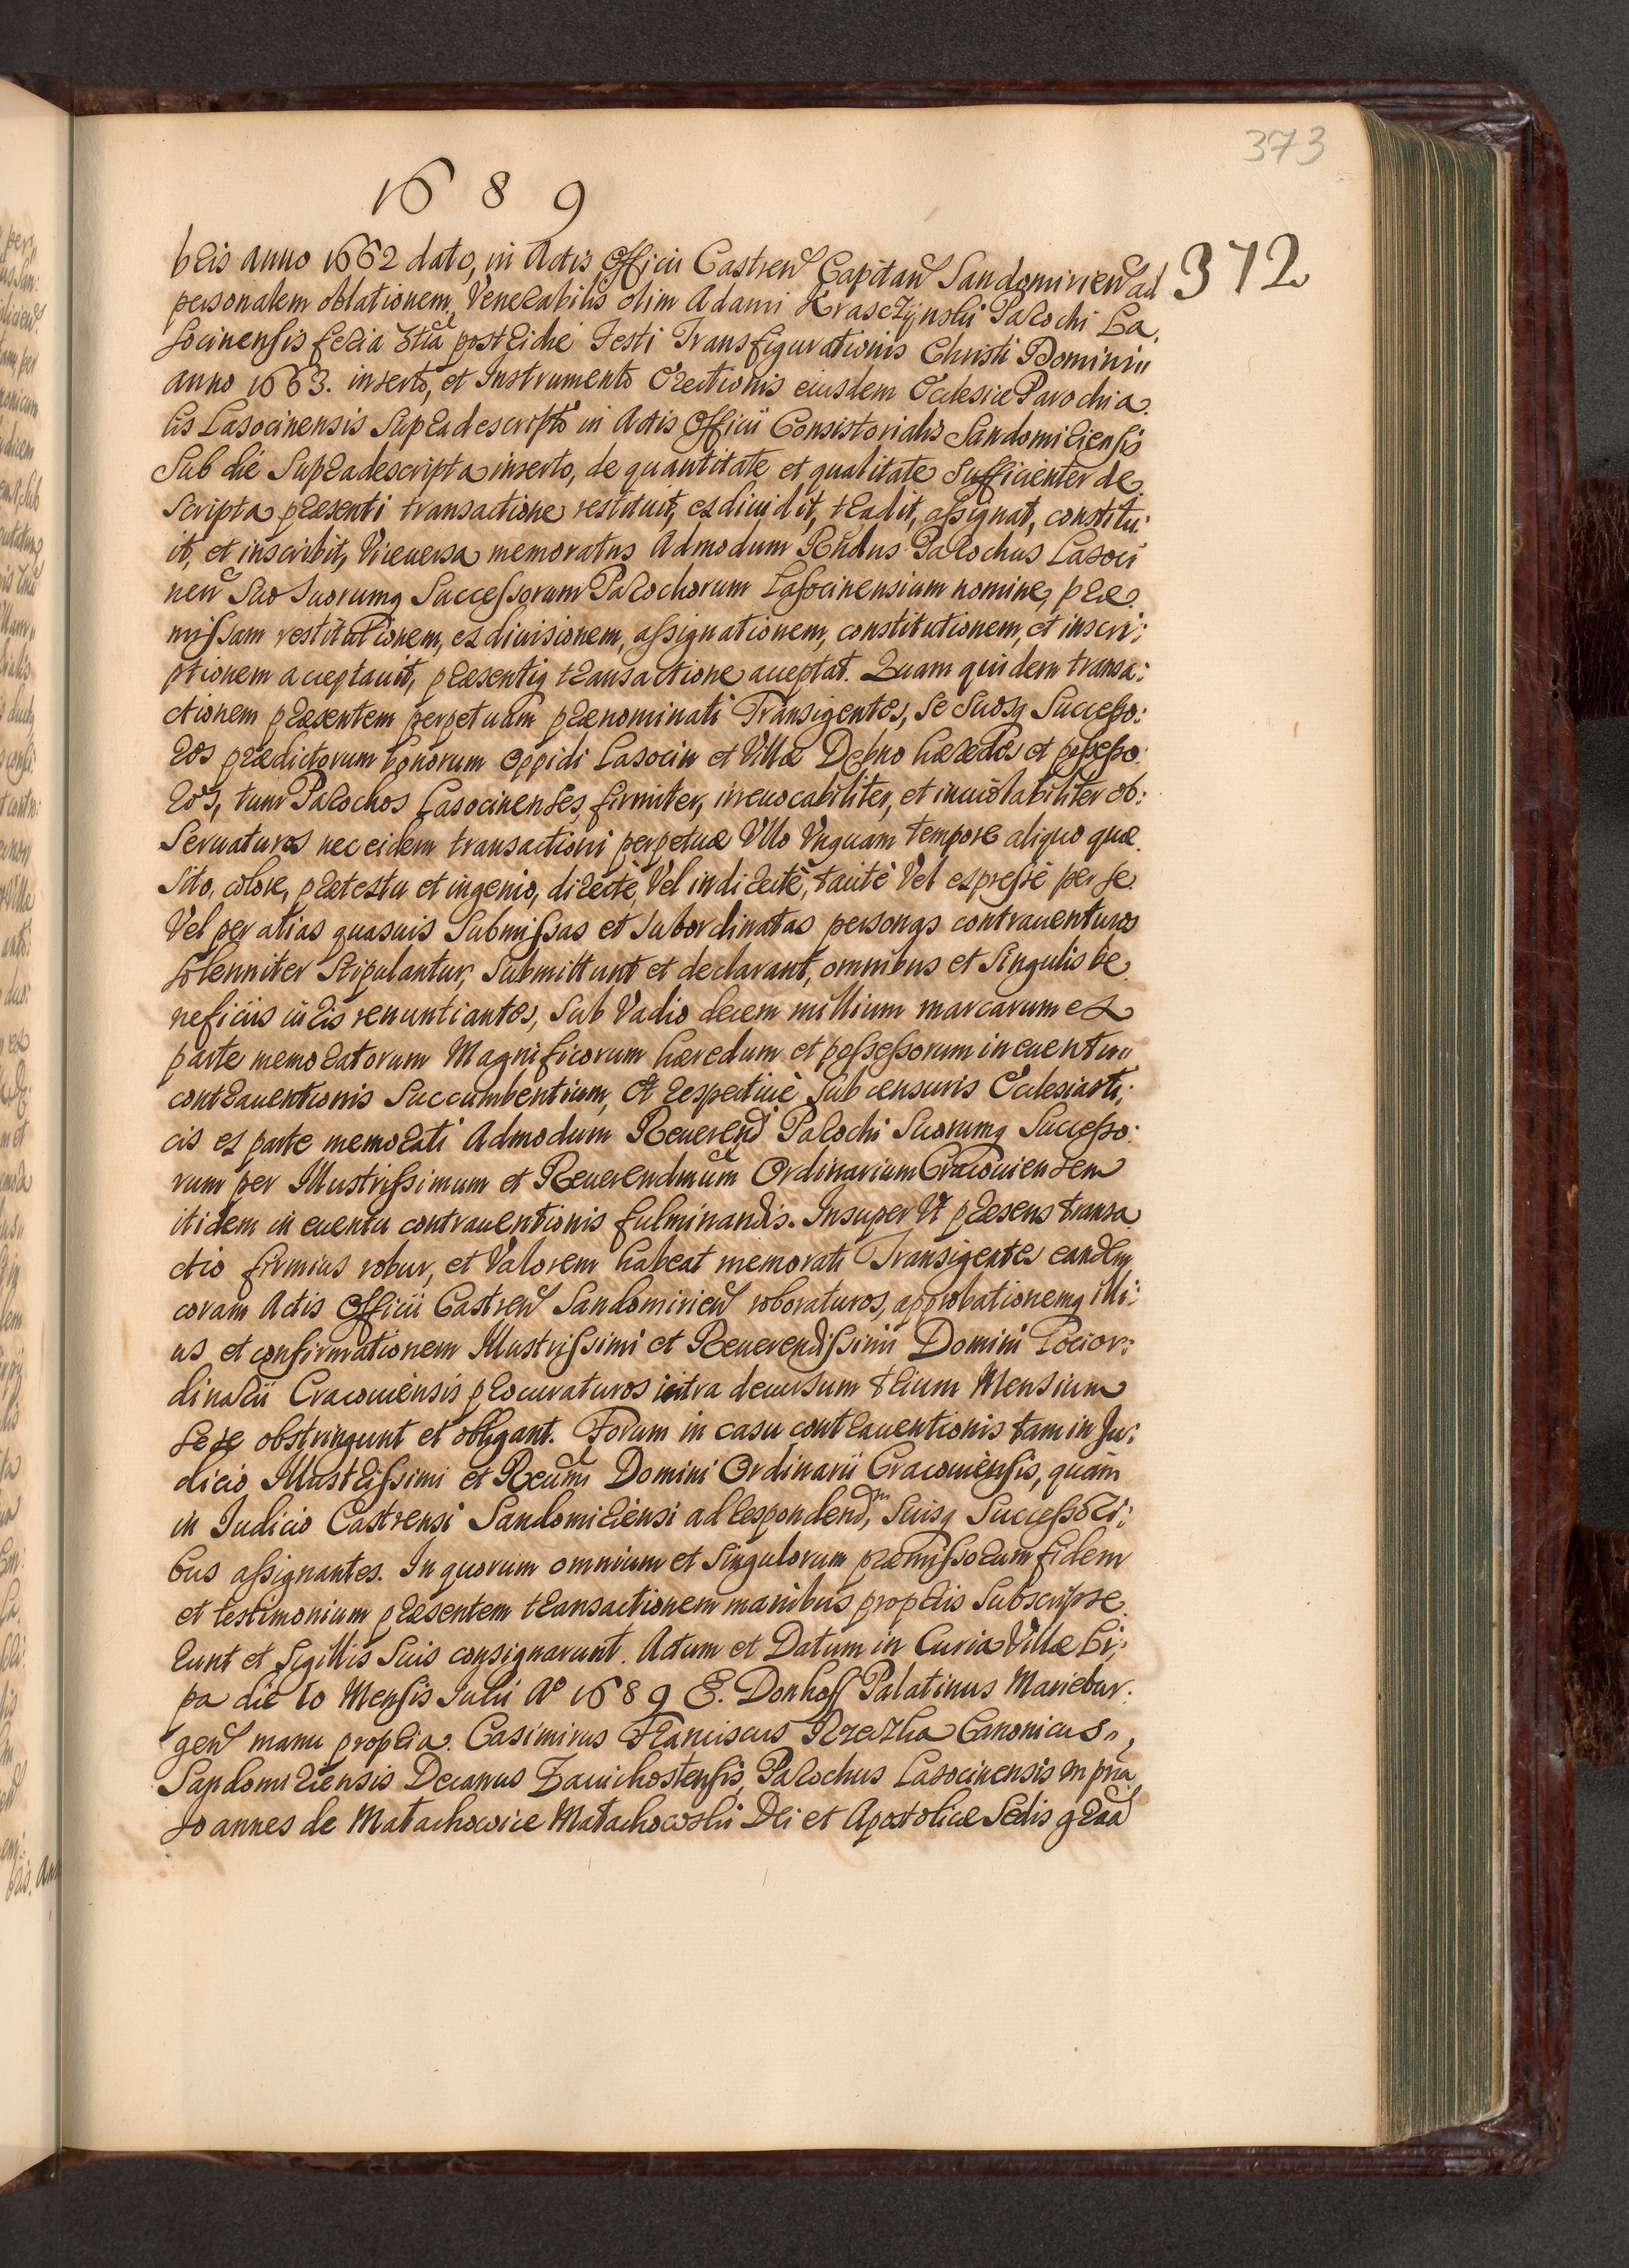 373
1689
372
bris anno 1662 dato, in Actis Officii Castren Capitan Sandomirien ad
personalem oblationem Venerabilis olim Adami Krasczÿnski Parochi La,
socinensis feria post Festi Transfigurationis Christi Domini
anno 1663. inserto, et Instrumento Erectionis eiusdem Ecclesiæ Parochia.
lis Lasocinensis supradescripto in Actis Officii Consistorialis Sandomiriensis
Sub die Supradescripta inserto, de quantitate et qualitate Sufficienter de
scripta præsenti transactione restituit, exdiuidit, tradit, assignat, constitu:
it, et inscribit, Viceuersa memoratus Admodum Rñdus Parochus Lasoci
nen Suo Suorumq Successorum Parochorum Lassocinensium nomine, præ
missam restitutionem, exdiuisionem, assignationem, constitutionem, et inscri:
ptionem acceptauit, præsentiq transactione acceptat. Quam quidem transa:
ctionem præsentem perpetuam prænominati Transigentes, se Suosq Successo:
res prædictorum bonorum Oppidi Lasocin et Villæ Debno hæredes et possesso:
res, tum Parochos Lasocinenses, firmiter, irreuocabiliter, et inuiolabiliter ob:
Seruaturos nec eidem transactioni perpetuæ Vllo Vnquam tempore aliquo quæ.
sito, colore, prætextu et ingenio, directè, Vel indirectè, tacitè Vel expressè per se
Vel per alias quasuis Submissas et Subordinatas personas contrauenturos
solenniter Stipulantur, Submittunt et declarant, omnibus et Singulis be
neficiis iuris renuntiantes, Sub Vadio decem millium marcarum ex
parte memoratorum Magnificorum hæredum et possessorum in euentu
contrauentionis Succumbentium, et respectiuè Sub censuris Ecclesiasti:
cis ex parte memorati Admodum Reuerend Parochi Suorumq Successo:
rum per Illustrissimum et Reuerendmum Ordinarium Cracouiensem
itidem in euentu contrauentionis fulminandis. Insuper Vt præsens transa
ctio firmius robur, et Valorem habeat memorati Transigentes eandem
coram Actis Officii Castren Sandomirien roboraturos, approbationemq illi:
us et confirmationem Illustrissimi et Reuerendissimi Domini Loci or:
dinarii Cracouiensis procuraturos intra decursum trium Mensium
Se se obstringunt et obligant. Forum in casu contrauentionis tam in Ju:
dicio Illustrissimi et Reum Domini Ordinarii Cracouiensis, quàm
in Iudicio Castrensi Sandomiriensi ad respondend, Suisq Successori:
bus assignantes. In quorum omnium et Singulorum præmissorum fidem
et testimonium præsentem transactionem manibus proprÿs Subscripse
runt et Sigillis Suis consignarunt. Actum et Datum in Curia Villæ Li:
pa die 10 Mensis Julii Aº 1689 E. Donhoff Palatinus Mariebur:
gen manu propria. Casimirus Franciscus Canonicus,
Sandomiriensis Decanus Zauichostensis, Parochus Lasocinensis m pria
Joannes de Małachowice Małachowski Dei et Apostolicæ Sedis graa